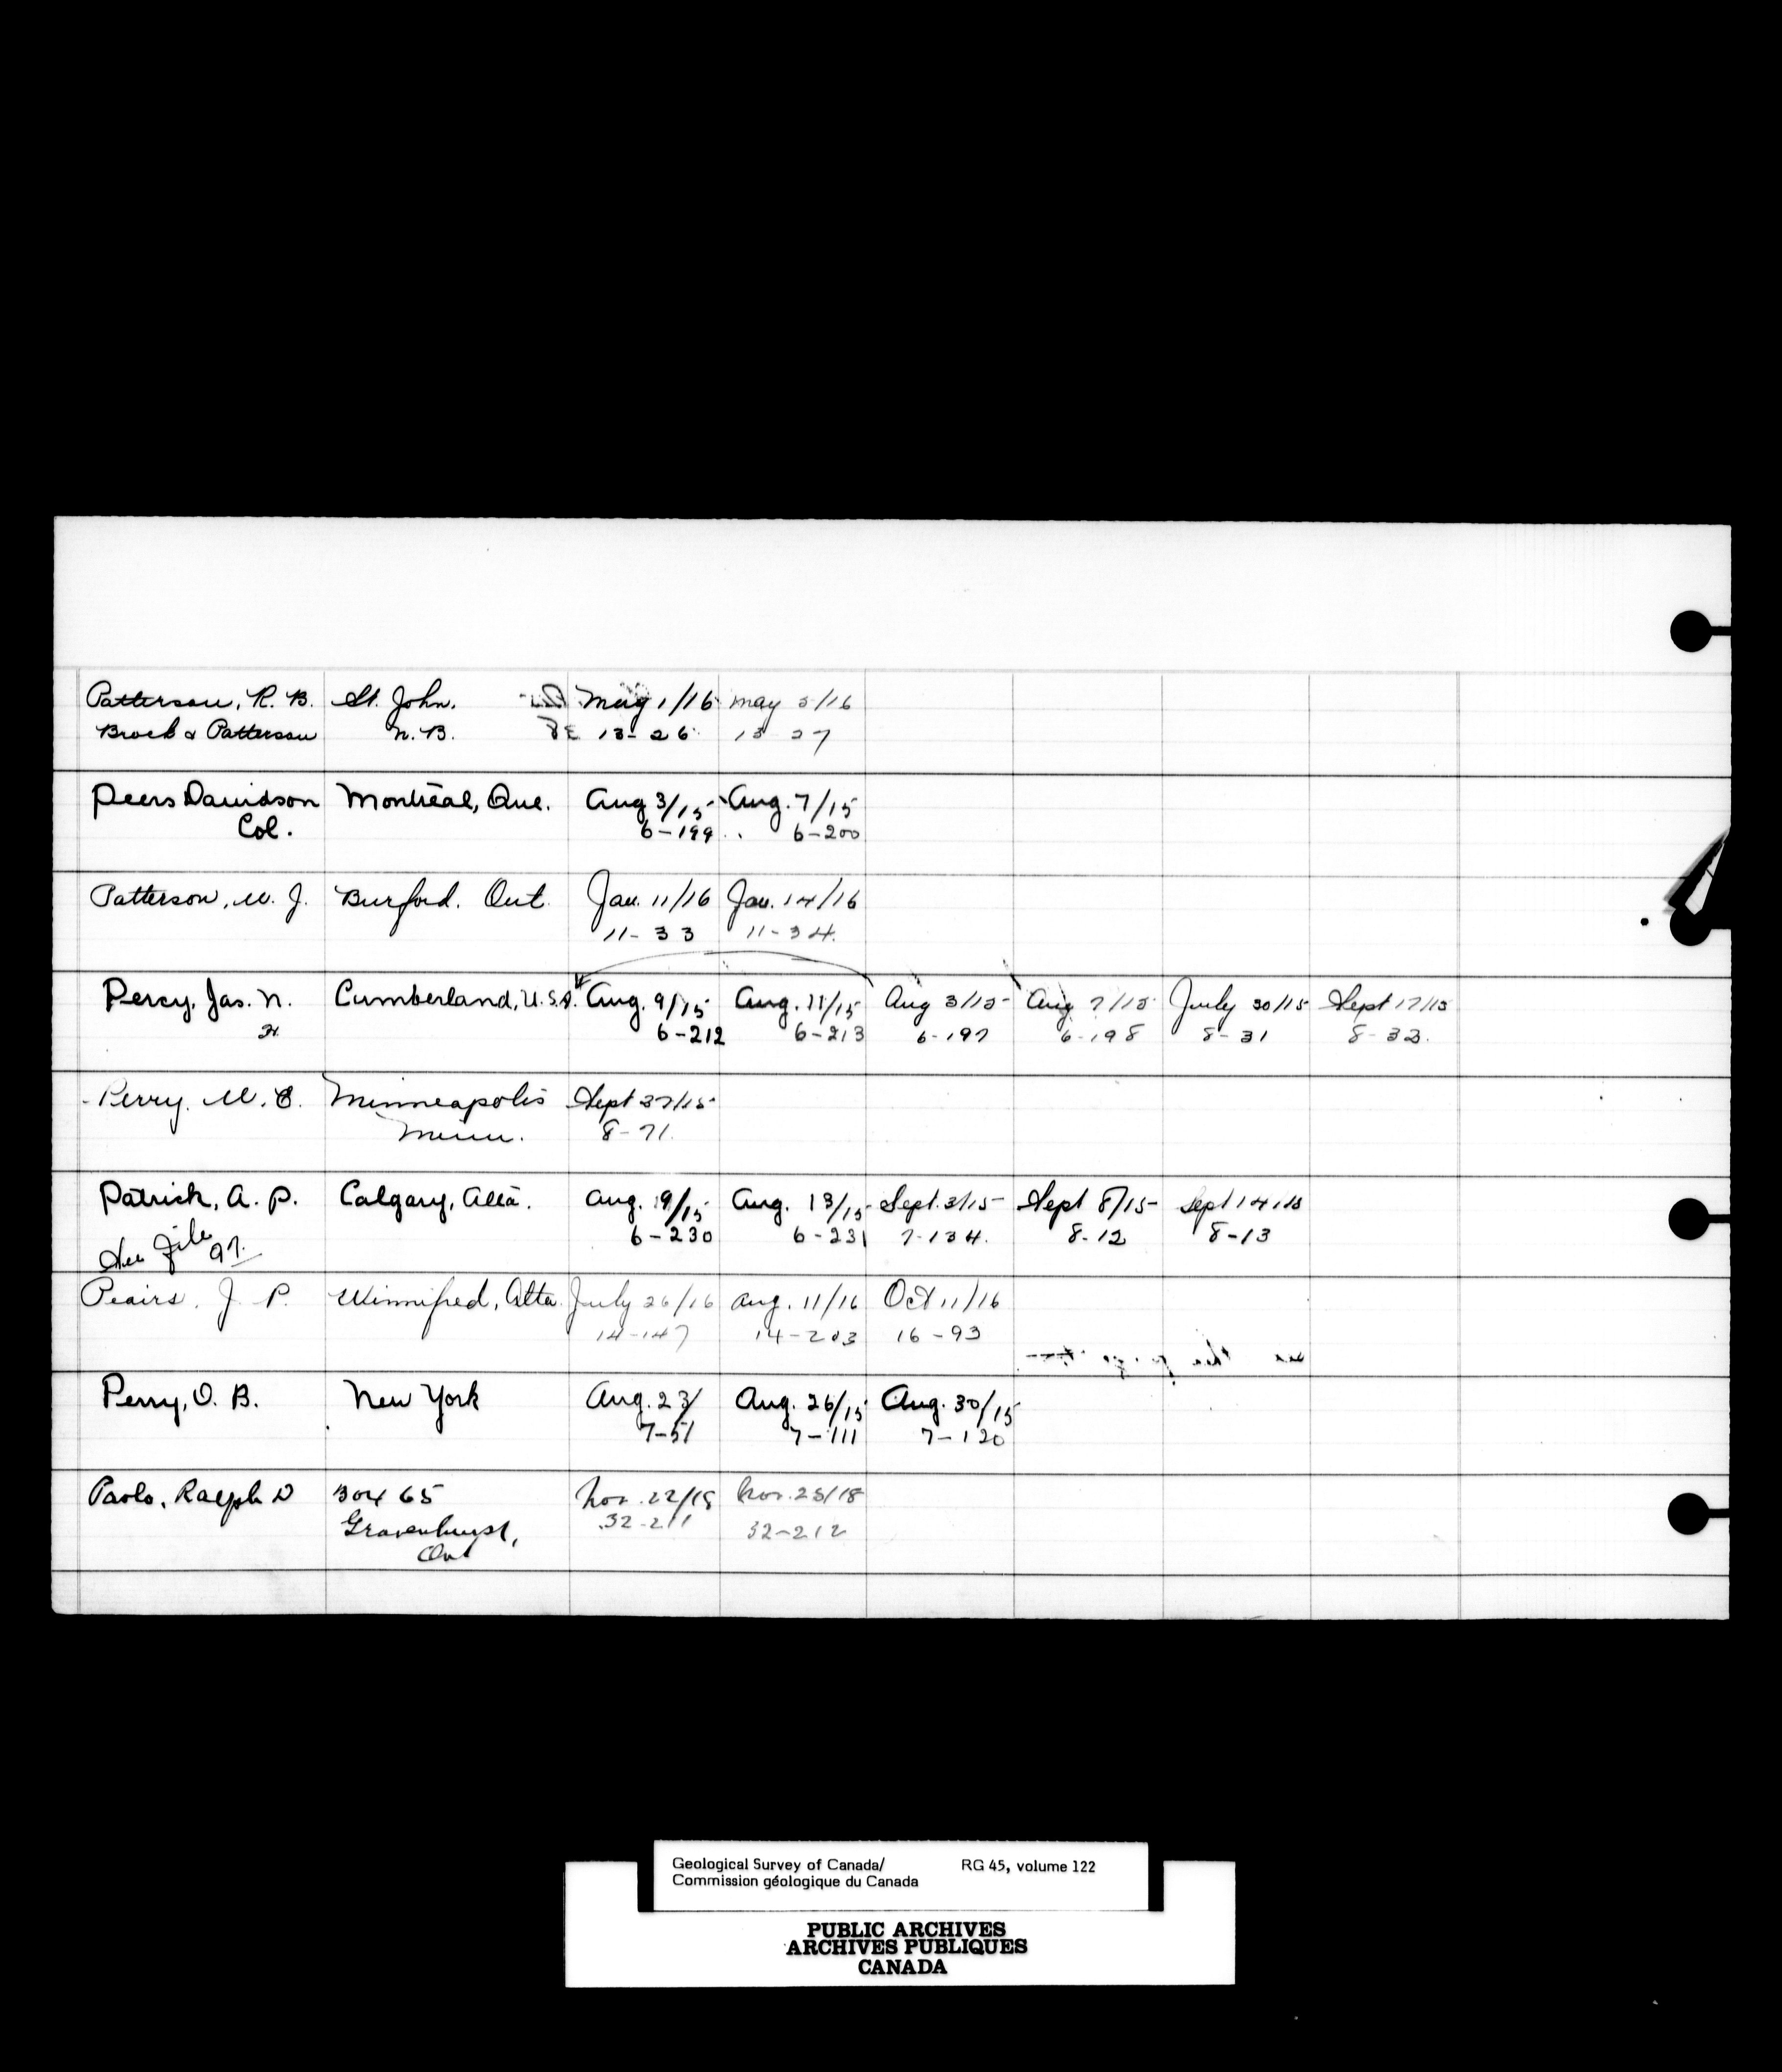 Patterson, R. B. St. John. May 1/16 May 5/16
Brock & Patterson N. B. 13-26 13 27
Peers Davidson Montreal, Que. Aug 3/15 Aug. 7/15
Col. 6-199 6-200
Patterson, W. J. Burford. Ont. Jan. 11/16 Jan. 14/16
11-33 11-34
Percy, Jas. N. Cumberland, U.S.A. Aug. 9/15 Aug. 11/15 Aug 3/15 Aug 7/15 July 30/15 Sept 17/15
6-212 6-213 6-197 6-198 8-31 8-32
Perry. W. E. Minneapolis Sept 27/15
Minn. 8-71
Patrick, A. P. Calgary, Alta. Aug. 9/15 Aug. 13/15 Sept. 3/15 Sept 8/15 Sept 14/15
See File 97. 6-230 6-231 7-134. 8-12 8-13
Peairs, J. P. Winnifred, Alta. July 26/16 Aug. 11/16 Oct 11/16
14-147 14-203 16-93
Perry, O. B. New York Aug. 23/ Aug. 26/15 Aug. 30/15
7-51 7-111 7-120
Ralph D Box 65 Nov. 22/18 Nov. 25/18
Gravenhurst, 32-211 32-212
Ont
Geological Survey of Canada/ RG 45, volume 122
Commission géologique du Canada
PUBLIC ARCHIVES
ARCHIVES PUBLIQUES
CANADA